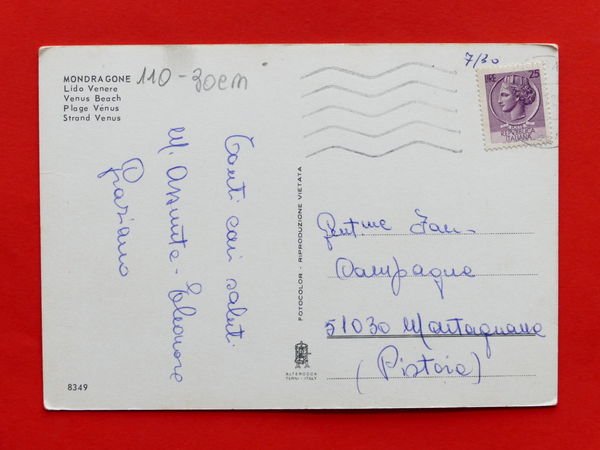 MONDRAGONE
Lido Venere
Venus Beach
Plage Vénus
Strand Venus
110 - 30em
Tanti cari saluti
M. Assunta - Eleonore
Graziano
8349
FOTOCOLOR - RIPRODUZIONE VIETATA
ALTEROCCA
TERNI - ITALY
7/30
LIRE 25
REPUBBLICA
ITALIANA
Gent.me Fam.
Dampagne
51030 Montagnana
(Pistoia)